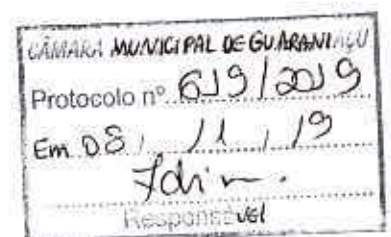 CÂMARA MUNICIPAL DE GUARANIAÇU
Protocolo nº 619/2019
Em 08 / 11 / 19
Responsável